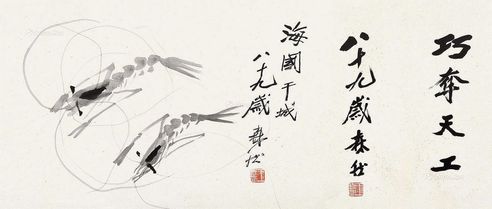 巧奪天工
八十九歲森然
海國干城
八十九歲森然